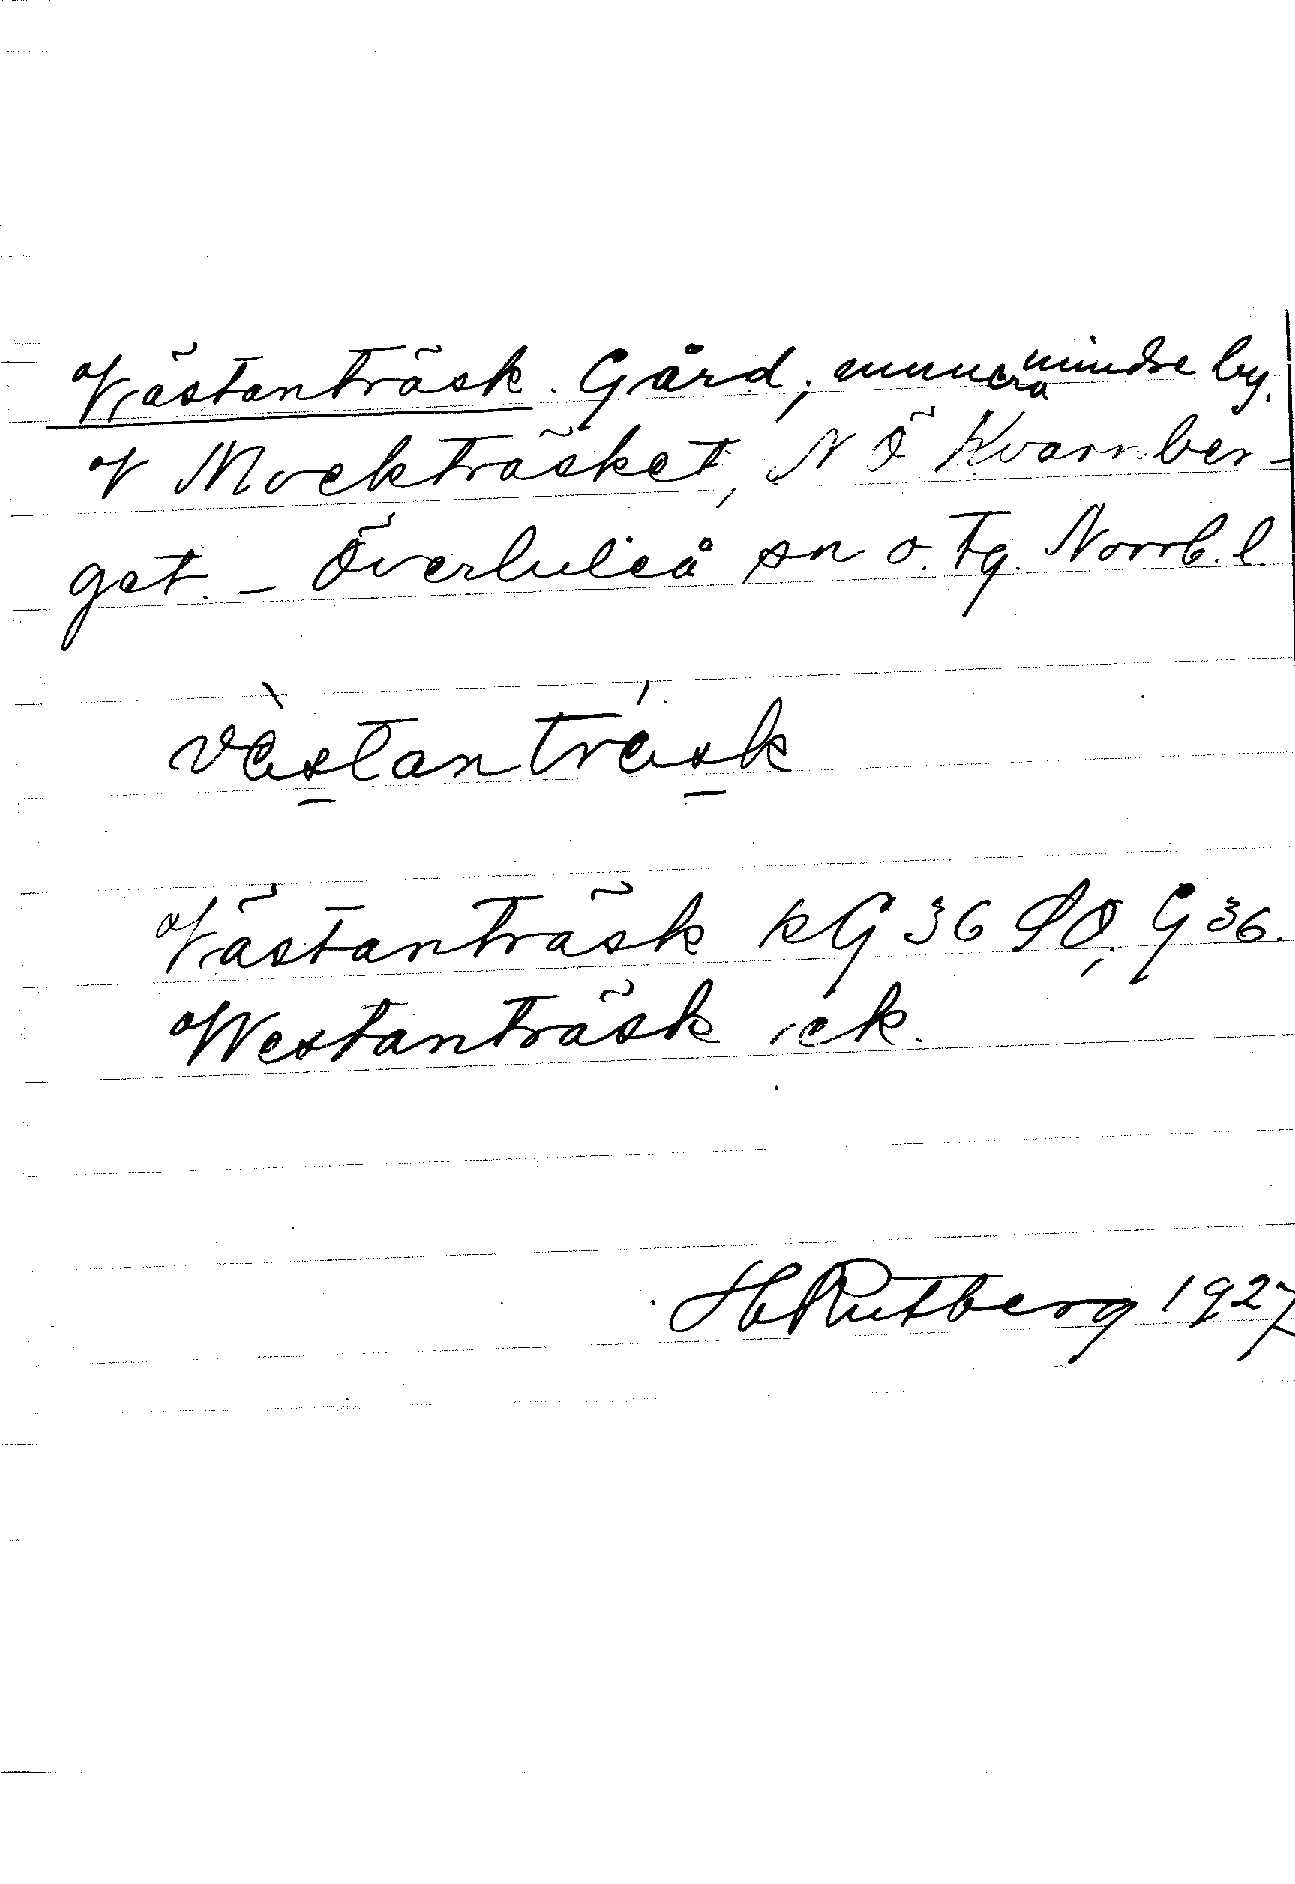 Västanträsk. Gård, numera mindre by.
V Mockträsket, N Ö Kvarnber-
get. – Överluleå sn o. Tg. Norrb. l.
västanträsk
Västanträsk kG 36 SO, G 36.
Westanträsk ek.
H Rutberg 1927